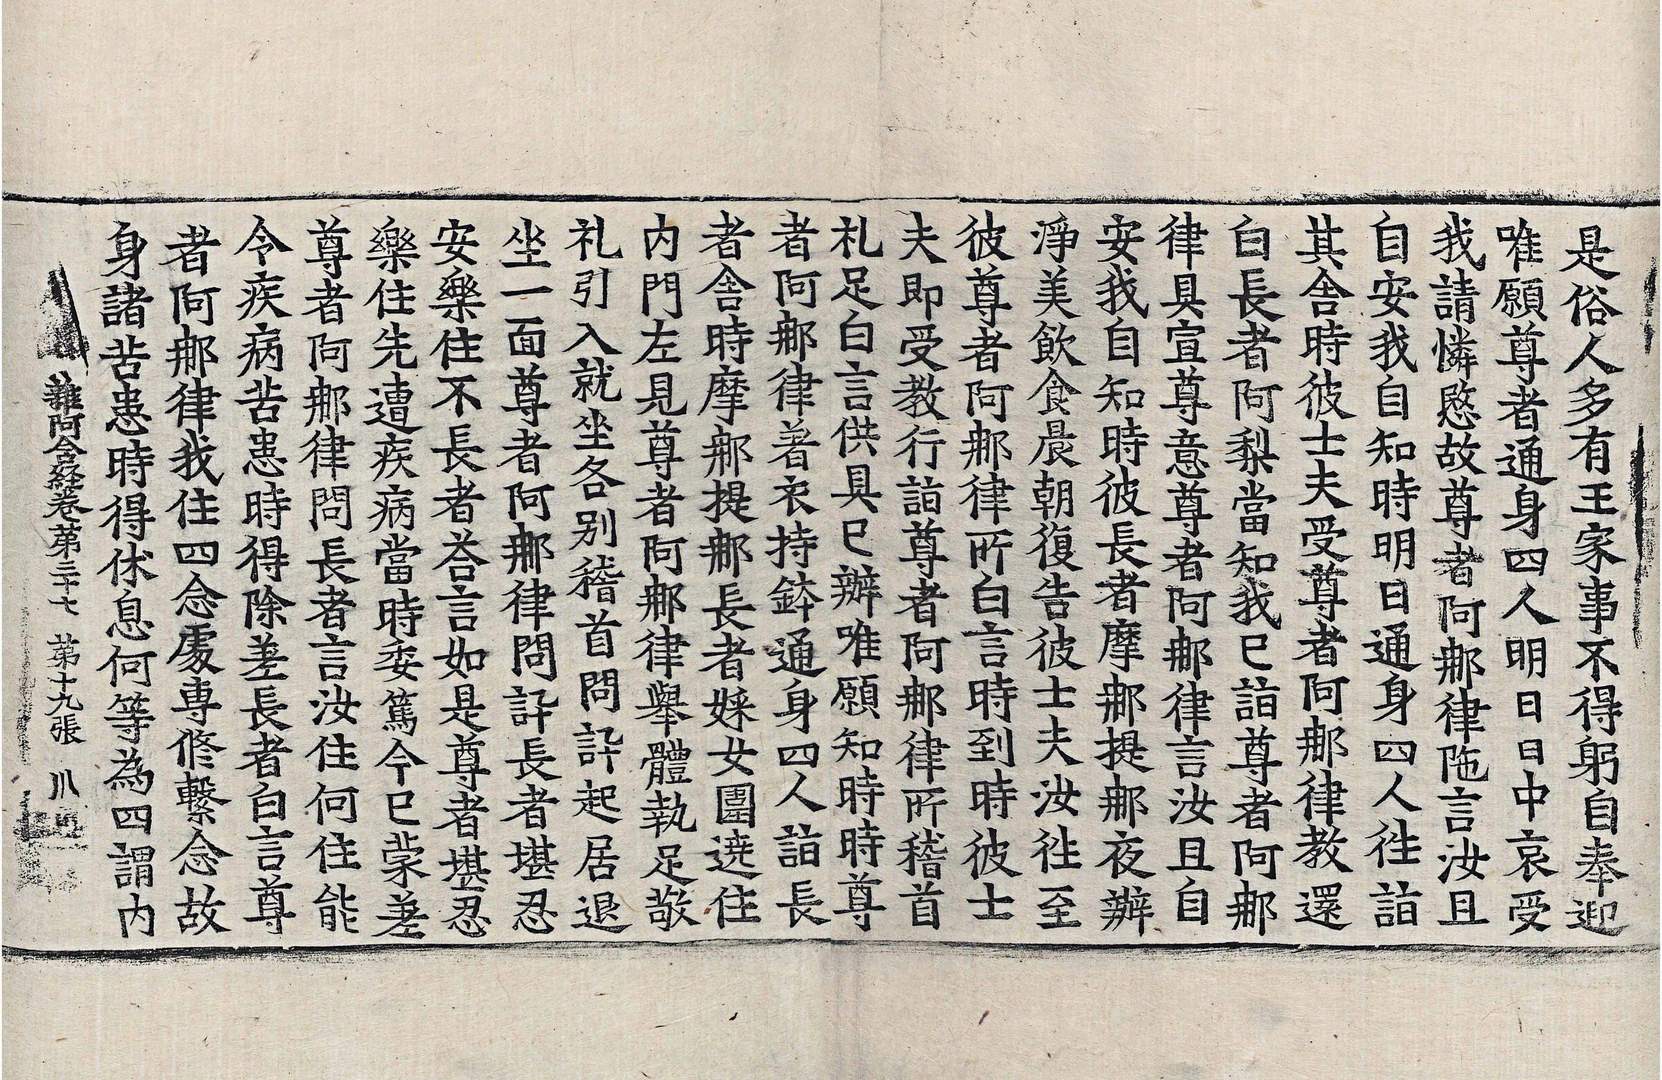 是俗人多有王家事不得躬自奉迎
唯願尊者通身四人明日日中哀受
我請憐愍故尊者阿那律陁言汝且
自安我自知時明日通身四人往詣
其舍時彼士夫受尊者阿那律教還
白長者阿梨當知我已詣尊者阿那
律具宣尊意尊者阿那律言汝且自
安我自知時彼長者摩那提那夜辦
淨美飲食晨朝復告彼士夫汝往至
彼尊者阿那律所白言時到時彼士
夫即受教行詣尊者阿那律所稽首
礼足白言供具已辦唯願知時時尊
者阿那律著衣持鉢通身四人詣長
者舍時摩那提那長者婇女圍遶住
内門左見尊者阿那律舉體執足敬
礼引入就坐各別稽首問訊起居退
坐一面尊者阿那律問訊長者堪忍
安樂住不長者荅言如是尊者堪忍
樂住先遭疾病當時委篤今已蒙差
尊者阿那律問長者言汝住何住能
令疾病苦患時得除差長者白言尊
者阿那律我住四念處專修繫念故
身諸苦患時得休息何等為四謂内
雜阿含経卷第三十七 第十九張 川